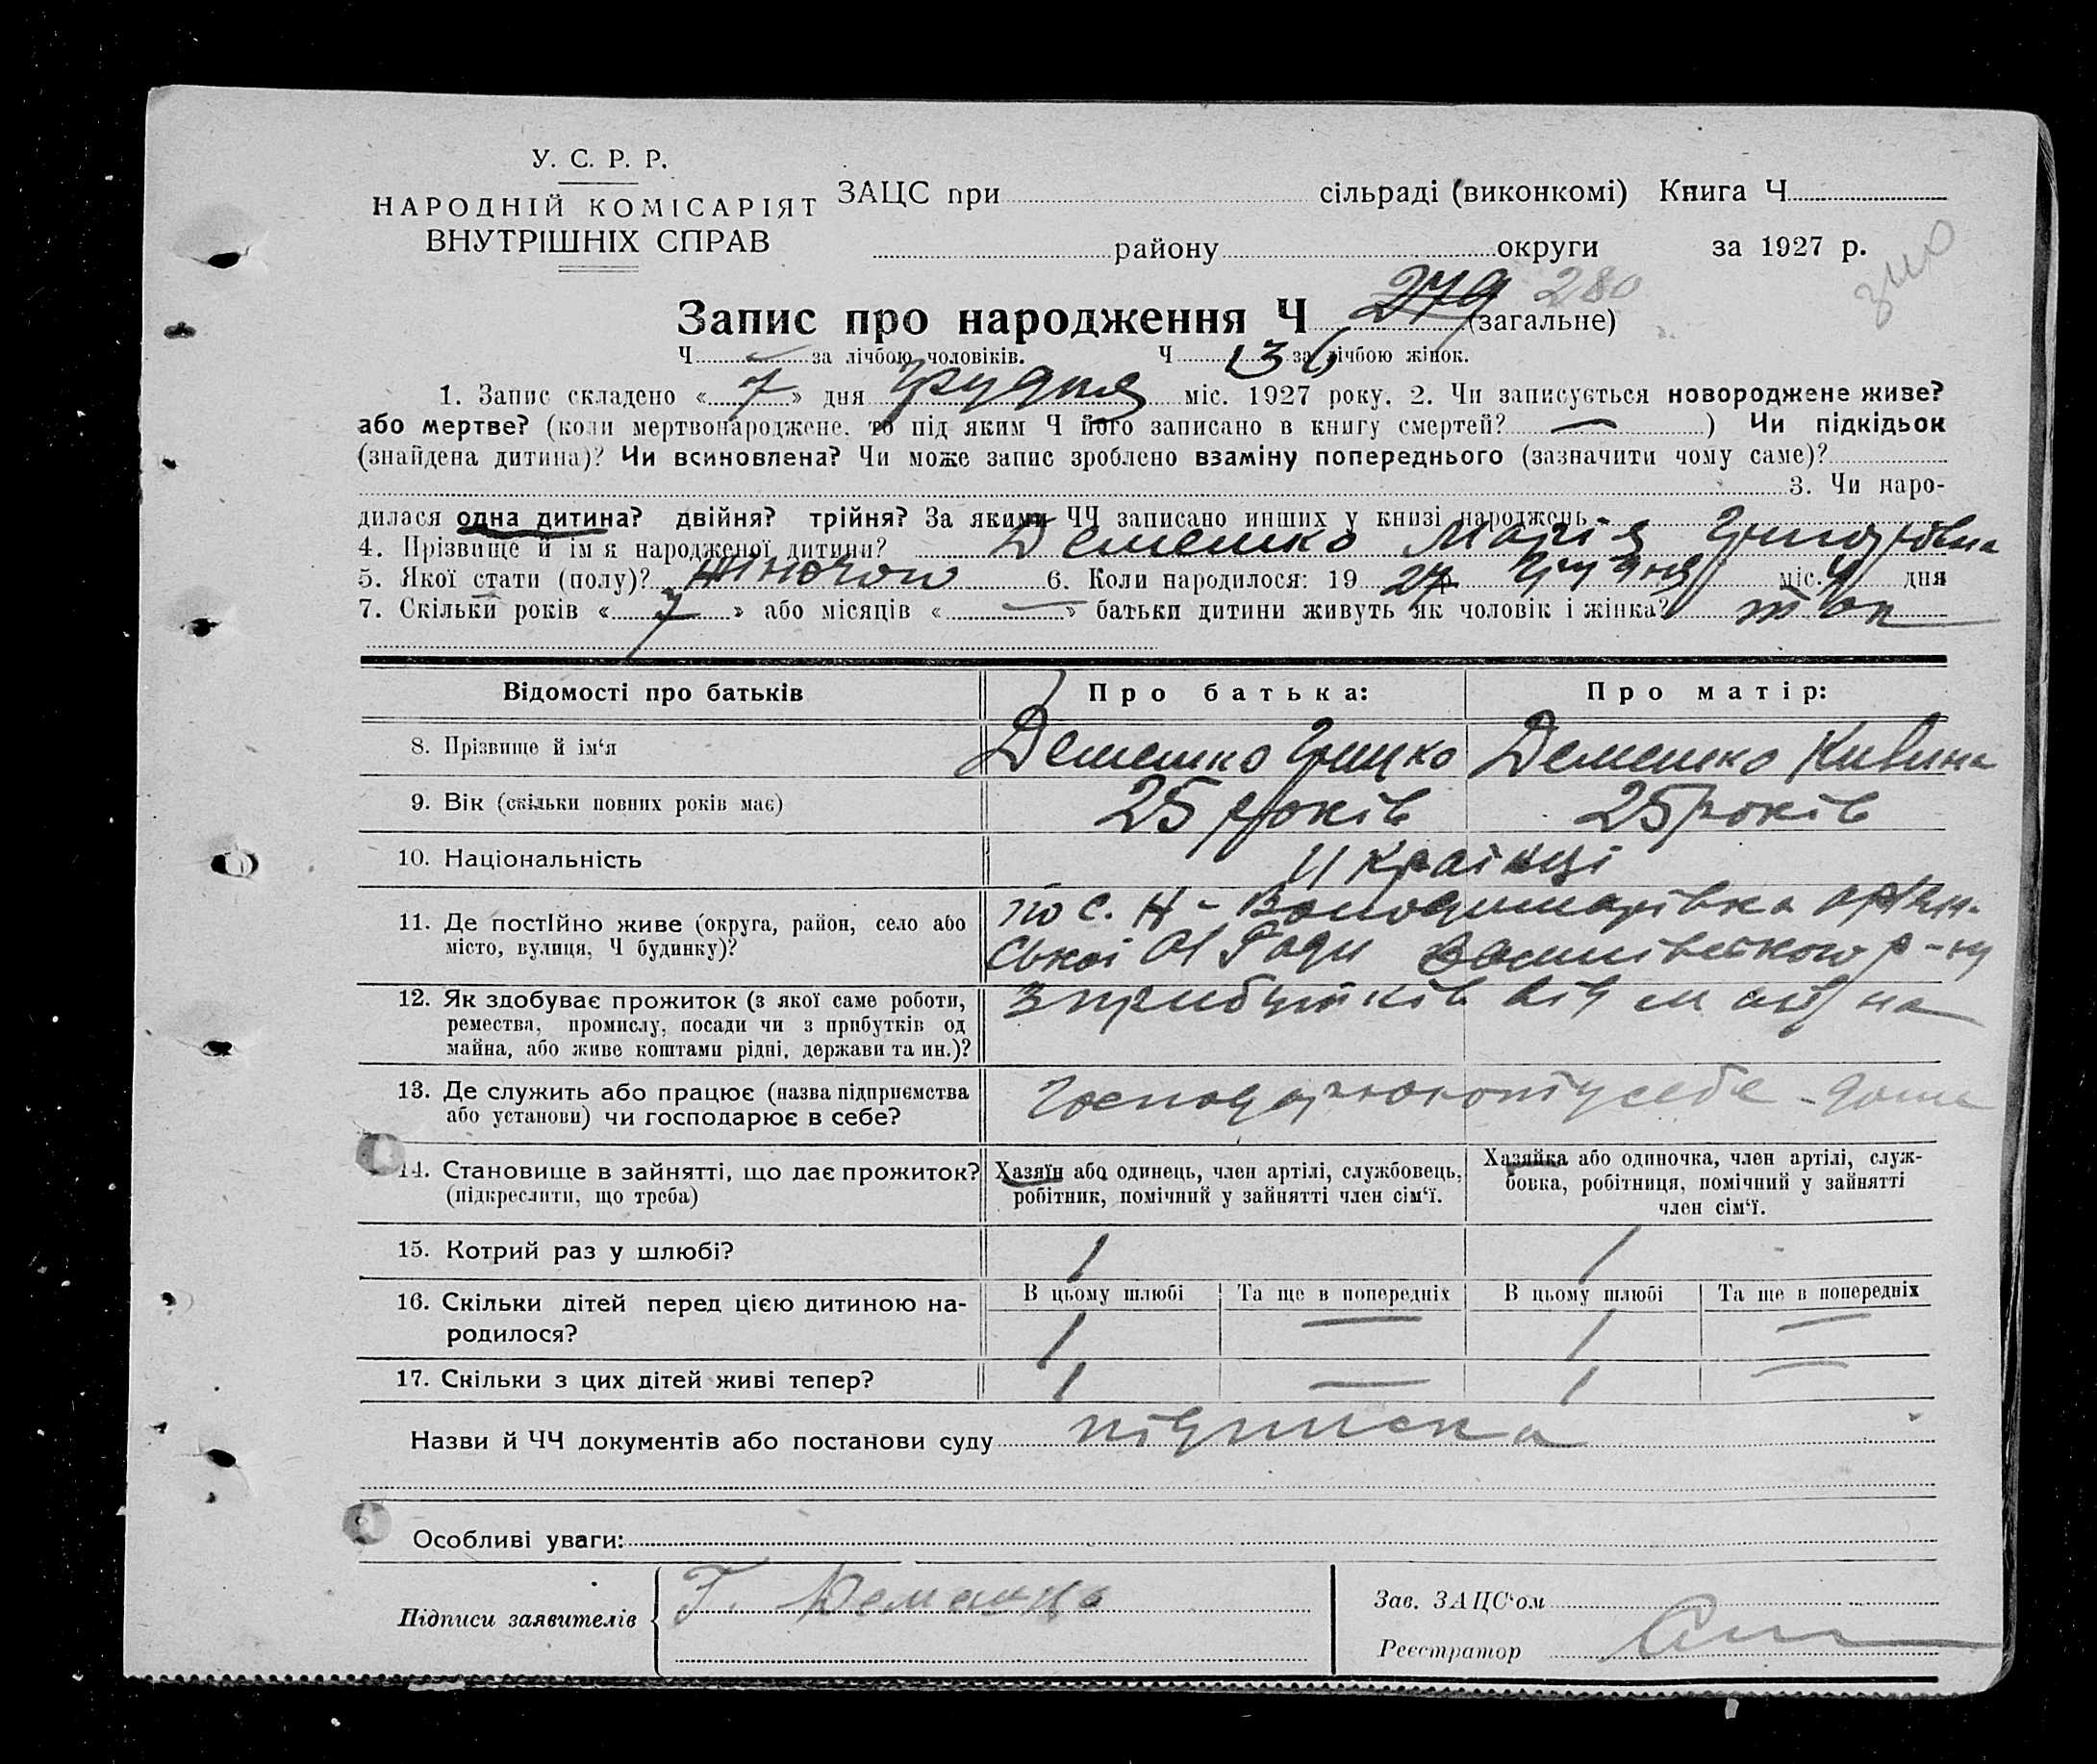 У. С. Р. Р.
НАРОДНІЙ КОМІСАРІЯТ
ВНУТРІШНІХ СПРАВ
ЗАЦС при сільраді (виконкомі) Книга Ч
району округи за 1927 р.
Запис про народження Ч 279 280 (загальне)
Ч за лічбою чоловіків. Ч 136 за лічбою жінок.
1. Запис складено « 7 » дня грудня міс. 1927 року. 2. Чи записується новороджене живе?
або мертве? (коли мертвонароджене, то під яким Ч його записано в книгу смертей? — ) Чи підкідьок
(знайдена дитина)? Чи всиновлена? Чи може запис зроблено взаміну попереднього (зазначити чому саме)?
3. Чи наро-
дилася одна дитина? двійня? трійня? За якими ЧЧ записано инших у книзі народжень
4. Прізвище й ім я народженої дитини? Демешко Марія Григорівна
5. Якої стати (полу)? жіночои 6. Коли народилося: 19 27 грудня міс. дня
7. Скільки років « 7 » або місяців « — » батьки дитини живуть як чоловік і жінка? так
Відомості про батьків
Про батька:
Про матір:
8. Прізвище й ім‘я
Демешко Грицко
Демешко Килина
9. Вік (скільки повних років має)
25 років
25 років
10. Національність
Українці
11. Де постійно живе (округа, район, село або
місто, вулиця, Ч будинку)?
по с. Н-Володимирівка
ської С/Ради р-ну
12. Як здобуває прожиток (з якої саме роботи,
ремества, промислу, посади чи з прибутків од
майна, або живе коштами рідні, держави та ин.)?
з прибутків від майна
13. Де служить або працює (назва підприємства
або установи) чи господарює в себе?
Господарюють у себе - дома
14. Становище в зайнятті, що дає прожиток?
(підкреслити, що треба)
Хазяїн або одинець, член артілі, службовець,
робітник, помічний у зайнятті член сім‘ї.
Хазяйка або одиночка, член артілі, служ-
бовка, робітниця, помічний у зайнятті
член сім‘ї.
15. Котрий раз у шлюбі?
1
1
16. Скільки дітей перед цією дитиною на-
родилося?
В цьому шлюбі Та ще в попередніх В цьому шлюбі Та ще в попередніх
1 — 1 —
17. Скільки з цих дітей живі тепер?
1 — 1 —
Назви й ЧЧ документів або постанови суду підписка
Особливі уваги:
Підписи заявителів
Г. Демешко
Зав. ЗАЦС‘ом
Реєстратор